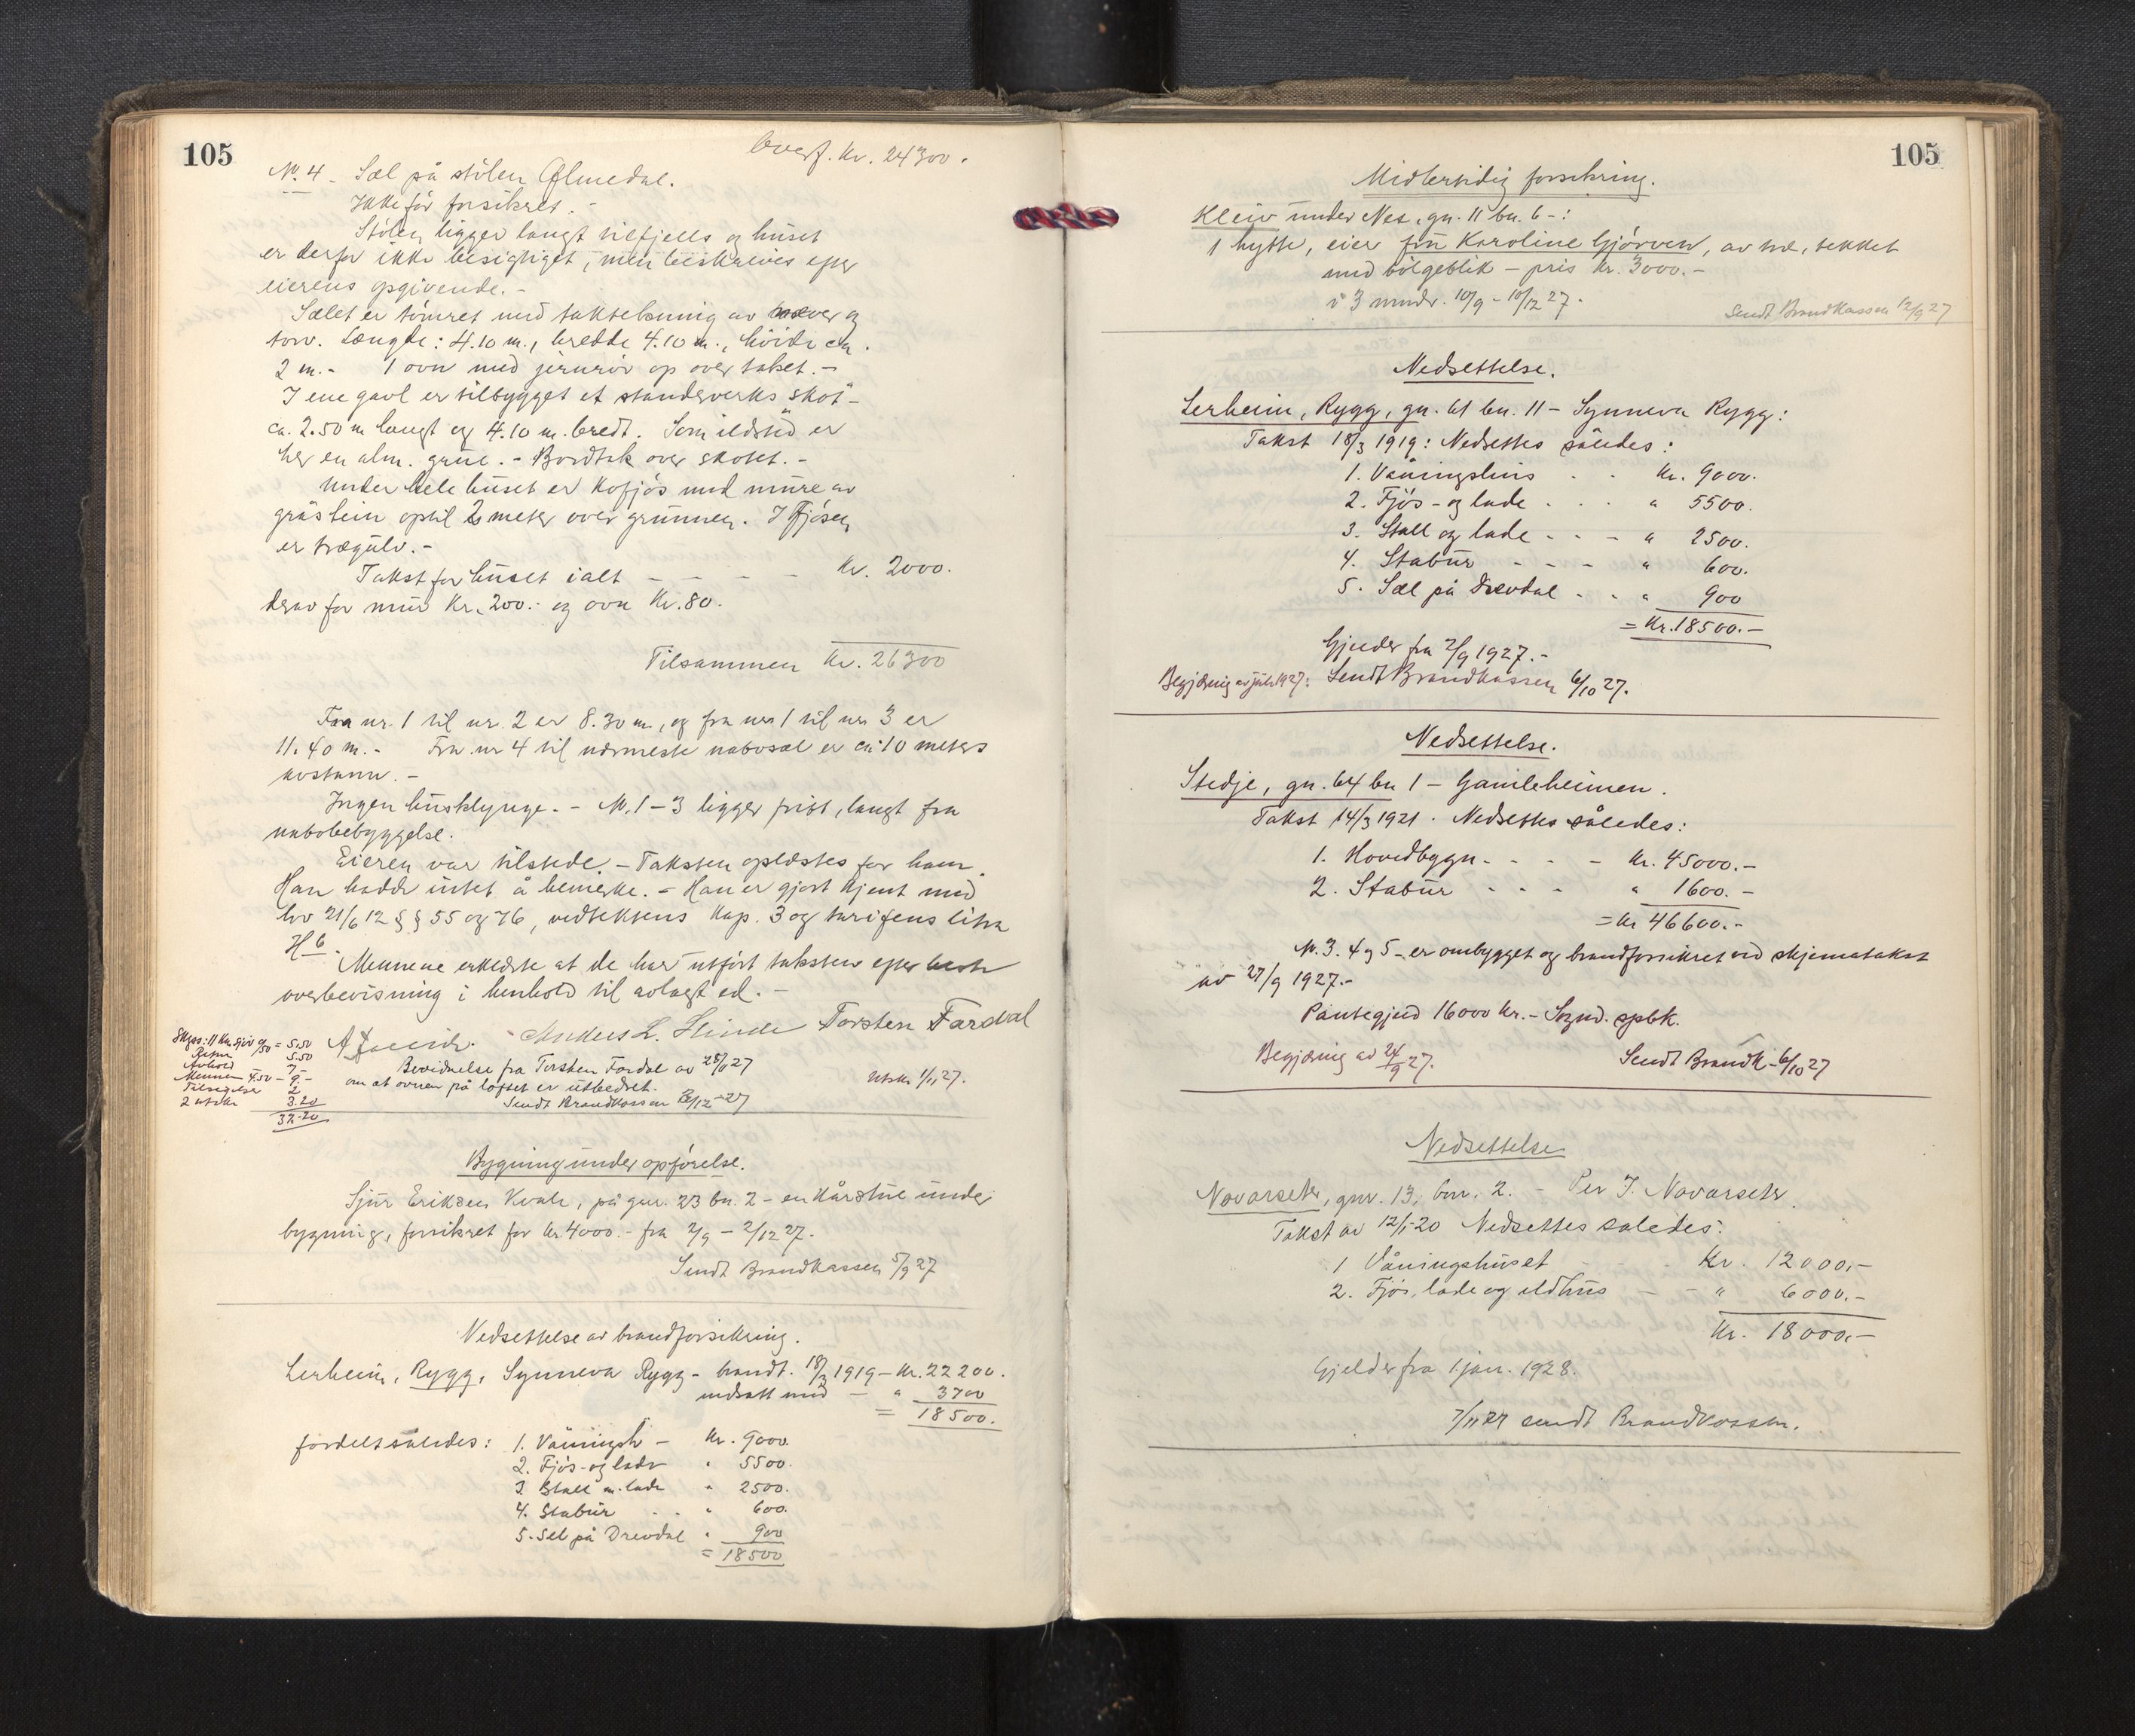 105
Overf. Kr. 24300.
Nr. 4. Sæl på stölen Ølmedal.
Ikke för forsikret. -
Stölen ligger langt tilfjells og huset
er derfor ikke besigtiget, men beskrives efter
eierens opgivende. -
Sælet er tömret med taktekning av næver og
torv. Længde: 4.10 m., bredde 4.10 m., höide ca.
2 m. - 1 ovn med jernrör op over taket. -
I ene gavl er tilbygget et standerverks skot -
ca. 2.50 m langt og 4.10 m. bredt. Som ildsted er
her en alm. grue. - Bordtak over skotet. -
Under hele huset er kofjös med mure av
gråstein optil 2 meter over grunnen. I fjösen
er trægulv. -
Takst for huset ialt - - - - Kr. 2000.
derav for mur Kr. 200.- og ovn Kr. 80.
Tilsammen Kr. 26300
Fra nr. 1 til nr. 2 er 8.30 m., og fra nr. 1 til nr. 3 er
11.40 m. - Fra nr 4 til nærmeste nabosæl er ca. 10 meters
avstann. -
Ingen husklynge. - Nr. 1-3 ligger frist, langt fra
nabobebyggelse.
Eieren var tilstede. - Taksten oplæstes for ham.
Han hadde intet å bemerke. - Han er gjort kjent med
lov 21/6 12 § § 55 og 76, vedtektens kap. 3 og tarifens litra
H 6.
Mennene erklærte at de har utfört taksten efter beste
overbevisning i henhold til avlagt ed. -
Anders L. Slinde Torsten Fardal
Skyss: 11 km. á 0/50 = 5.50
Retur 5.50
Avhold 7.-
Mennene 4.50 - 9.-
Tilsigelse 2
2 utskr 3.20
32.20
Bevidnelse fra Torsten Fardal av 28/11 27
om at ovnen på loftet er utbedret.
Sendt Brandkassen 6/12-27
Utskr. 1/11 27.
Bygning under opförelse.
Sjur Eriksen Kvale, på gnr. 23 bn. 2 - en kårstue under
bygning, forsikret for kr. 4000.- fra 2/9 - 2/12 27.
Sendt Brandkassen 5/9 27
Nedsettelse av brandforsikring.
Lerheim, Rygg, Synneva Rygg - brandt. 18/3 1919 - Kr. 22200.
nedsatt med - " 3700
= 18500.
fordelt således: 1. Våningsh - Kr. 9000.
2. Fjös- og lade " 5500.
3. Stall m. lade " 2500.
4. Stabur . . " 600.
5. Sel på Drevdal " 900
= 18500
105
Midlertidig forsikring.
Kleiv under Nes, gn. 11 bn. 6 - :
1 hytte, eier fru Karoline Gjörven, av tre, tekket
med bölgeblik - pris Kr. 3000. -
i 3 mndr. 10/9 - 10/12 27.
Sendt Brandkassen 12/9 27
Nedsettelse.
Lerheim, Rygg, gn. 61 bn. 11 - Synneva Rygg:
Takst 18/3 1919: Nedsettes således:
1. Våningshus . . Kr. 9000.
2. Fjös- og lade . . . " 5500.
3. Stall og lade - - - " 2500.
4. Stabur - - - - " 600.
5. Sæl på Drevdal - - " 900
= Kr. 18500. -
Gjelder fra 2/9 1927. -
Begjæring av juli 1927: Sendt Brandkassen 6/10 27.
Nedsettelse.
Stedje, gn. 64 bn 1 - Gamleheimen.
Takst 14/3 1921. Nedsettes således:
1. Hovedbygn. - - - Kr. 45000. -
2. Stabur - - - " 1600. -
= Kr 46600. -
Nr. 3. 4 og 5 - er ombygget og brandforsikret ved skjematakst
av 27/9 1927. -
Pantegjeld 16000 kr. - Sognd. spbk.
Begjæring av 24/9 27. Sendt Brandk - 6/10 27
Nedsettelse
Navarseter, gnr. 13, bnr. 2. - Per J. Navarseter.
Takst av 12/1-20 Nedsettes således:
1 Våningshuset Kr. 12000. -
2. Fjös, lade og eldhus - - " 6000. -
Kr. 18000. -
Gjelder fra 1 jan. 1928.
7/11 27 sendt Brandkassen.